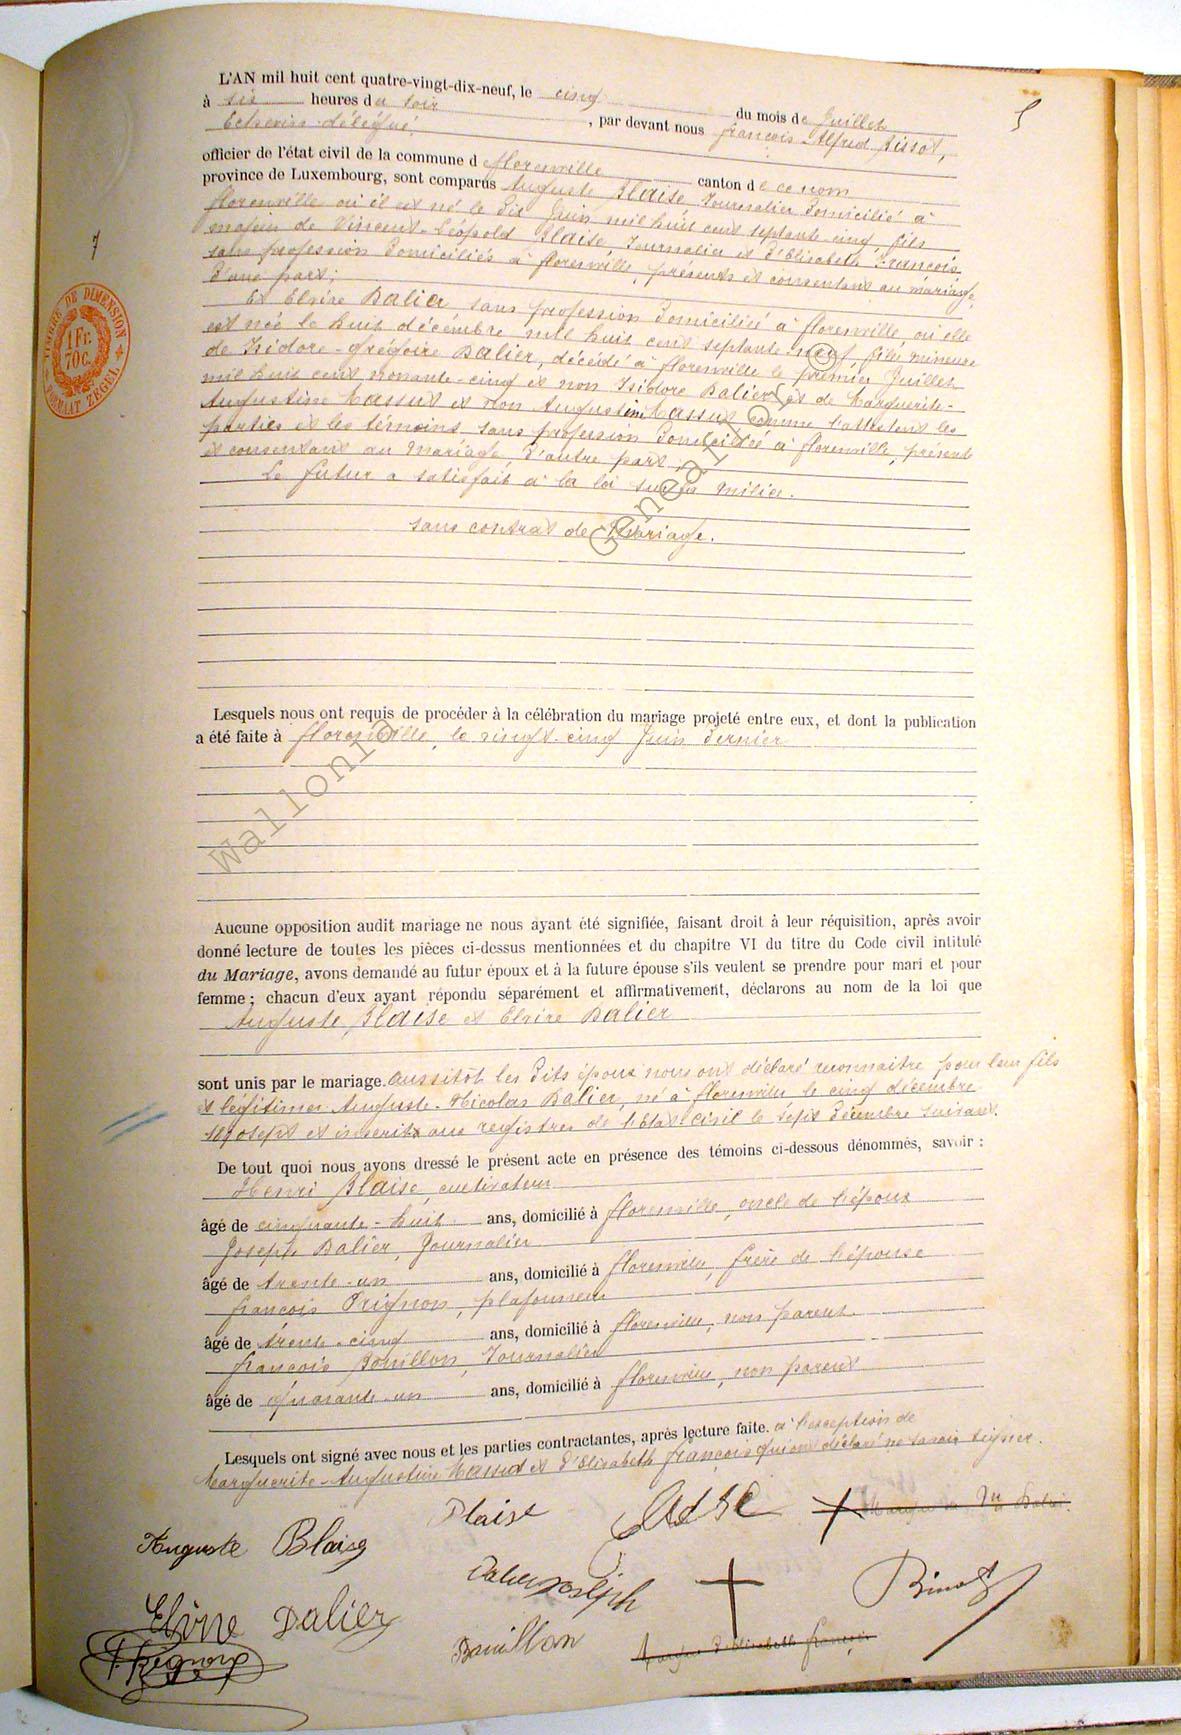 5
L'AN mil huit cent quatre-vingt-dix-neuf, le cinq du mois de Juillet
à six heures du soir, par devant nous françois-Alfred
Echevin-délégué,
officier de l'état civil de la commune d florenville canton de ce nom
province de Luxembourg, sont comparus Auguste Blaise Journalier domicilié à
florenville où il est né le dix Juin mil huit cent septante-cinq, fils
majeur de Vincent-Léopold Blaise Journalier et d'Elisabeth François
sans profession domiciliés à florenville, présents et consentant au mariage,
d'une part;
7
TIMBRE DE DIMENSION
1 Fr.
70 c.
FORMAAT ZEGEL
Et Elvire Dalier sans profession domiciliée à florenville, où elle
est née le huit décembre mil huit cent septante-neuf, fille mineure
de Isidore-Grégoire Dalier, décédé à florenville le premier Juillet
mil huit cent nonante-cinq et non Isidore Dalier, et de Marguerite-
Augustine Massut et non Augustine Massut comme l'attestent les
parties et les témoins sans profession domiciliée à florenville, présente
et consentant au mariage, d'autre part;
Le futur a satisfait à la loi sur la milice.
Sans contrat de Mariage.
Wallonia Genealogy ©
Lesquels nous ont requis de procéder à la célébration du mariage projeté entre eux, et dont la publication
a été faite à florenville, le vingt-cinq Juin dernier
Aucune opposition audit mariage ne nous ayant été signifiée, faisant droit à leur réquisition, après avoir
donné lecture de toutes les pièces ci-dessus mentionnées et du chapitre VI du titre du Code civil intitulé
du Mariage, avons demandé au futur époux et à la future épouse s'ils veulent se prendre pour mari et pour
femme ; chacun d'eux ayant répondu séparément et affirmativement, déclarons au nom de la loi que
Auguste Blaise et Elvire Dalier
sont unis par le mariage. Aussitôt les dits époux nous ont déclaré reconnaitre pour leur fils
et légitimer Auguste-Nicolas Dalier, né à florenville le cinq décembre
et inscrit aux registres de l'état civil le sept décembre suivant.
De tout quoi nous avons dressé le présent acte en présence des témoins ci-dessous dénommés, savoir :
Henri Blaise, cultivateur
âgé de cinquante-huit ans, domicilié à florenville, oncle de l'époux
Joseph Dalier, Journalier
âgé de trente-un ans, domicilié à florenville, frère de l'épouse
françois Prignon, plafonneur
âgé de trente-cinq ans, domicilié à florenville, non parent
françois Bouillon, Journalier
âgé de quarante-un ans, domicilié à florenville, non parent
Lesquels ont signé avec nous et les parties contractantes, après lecture faite. à l'exception de
Marguerite-Augustine Massut et d'Elisabeth françois qui ont déclaré ne savoir signer.
Blaise
Auguste Blaise
Dalier Joseph
Elvire Dalier
Bouillon
Marque d'Elisabeth françois